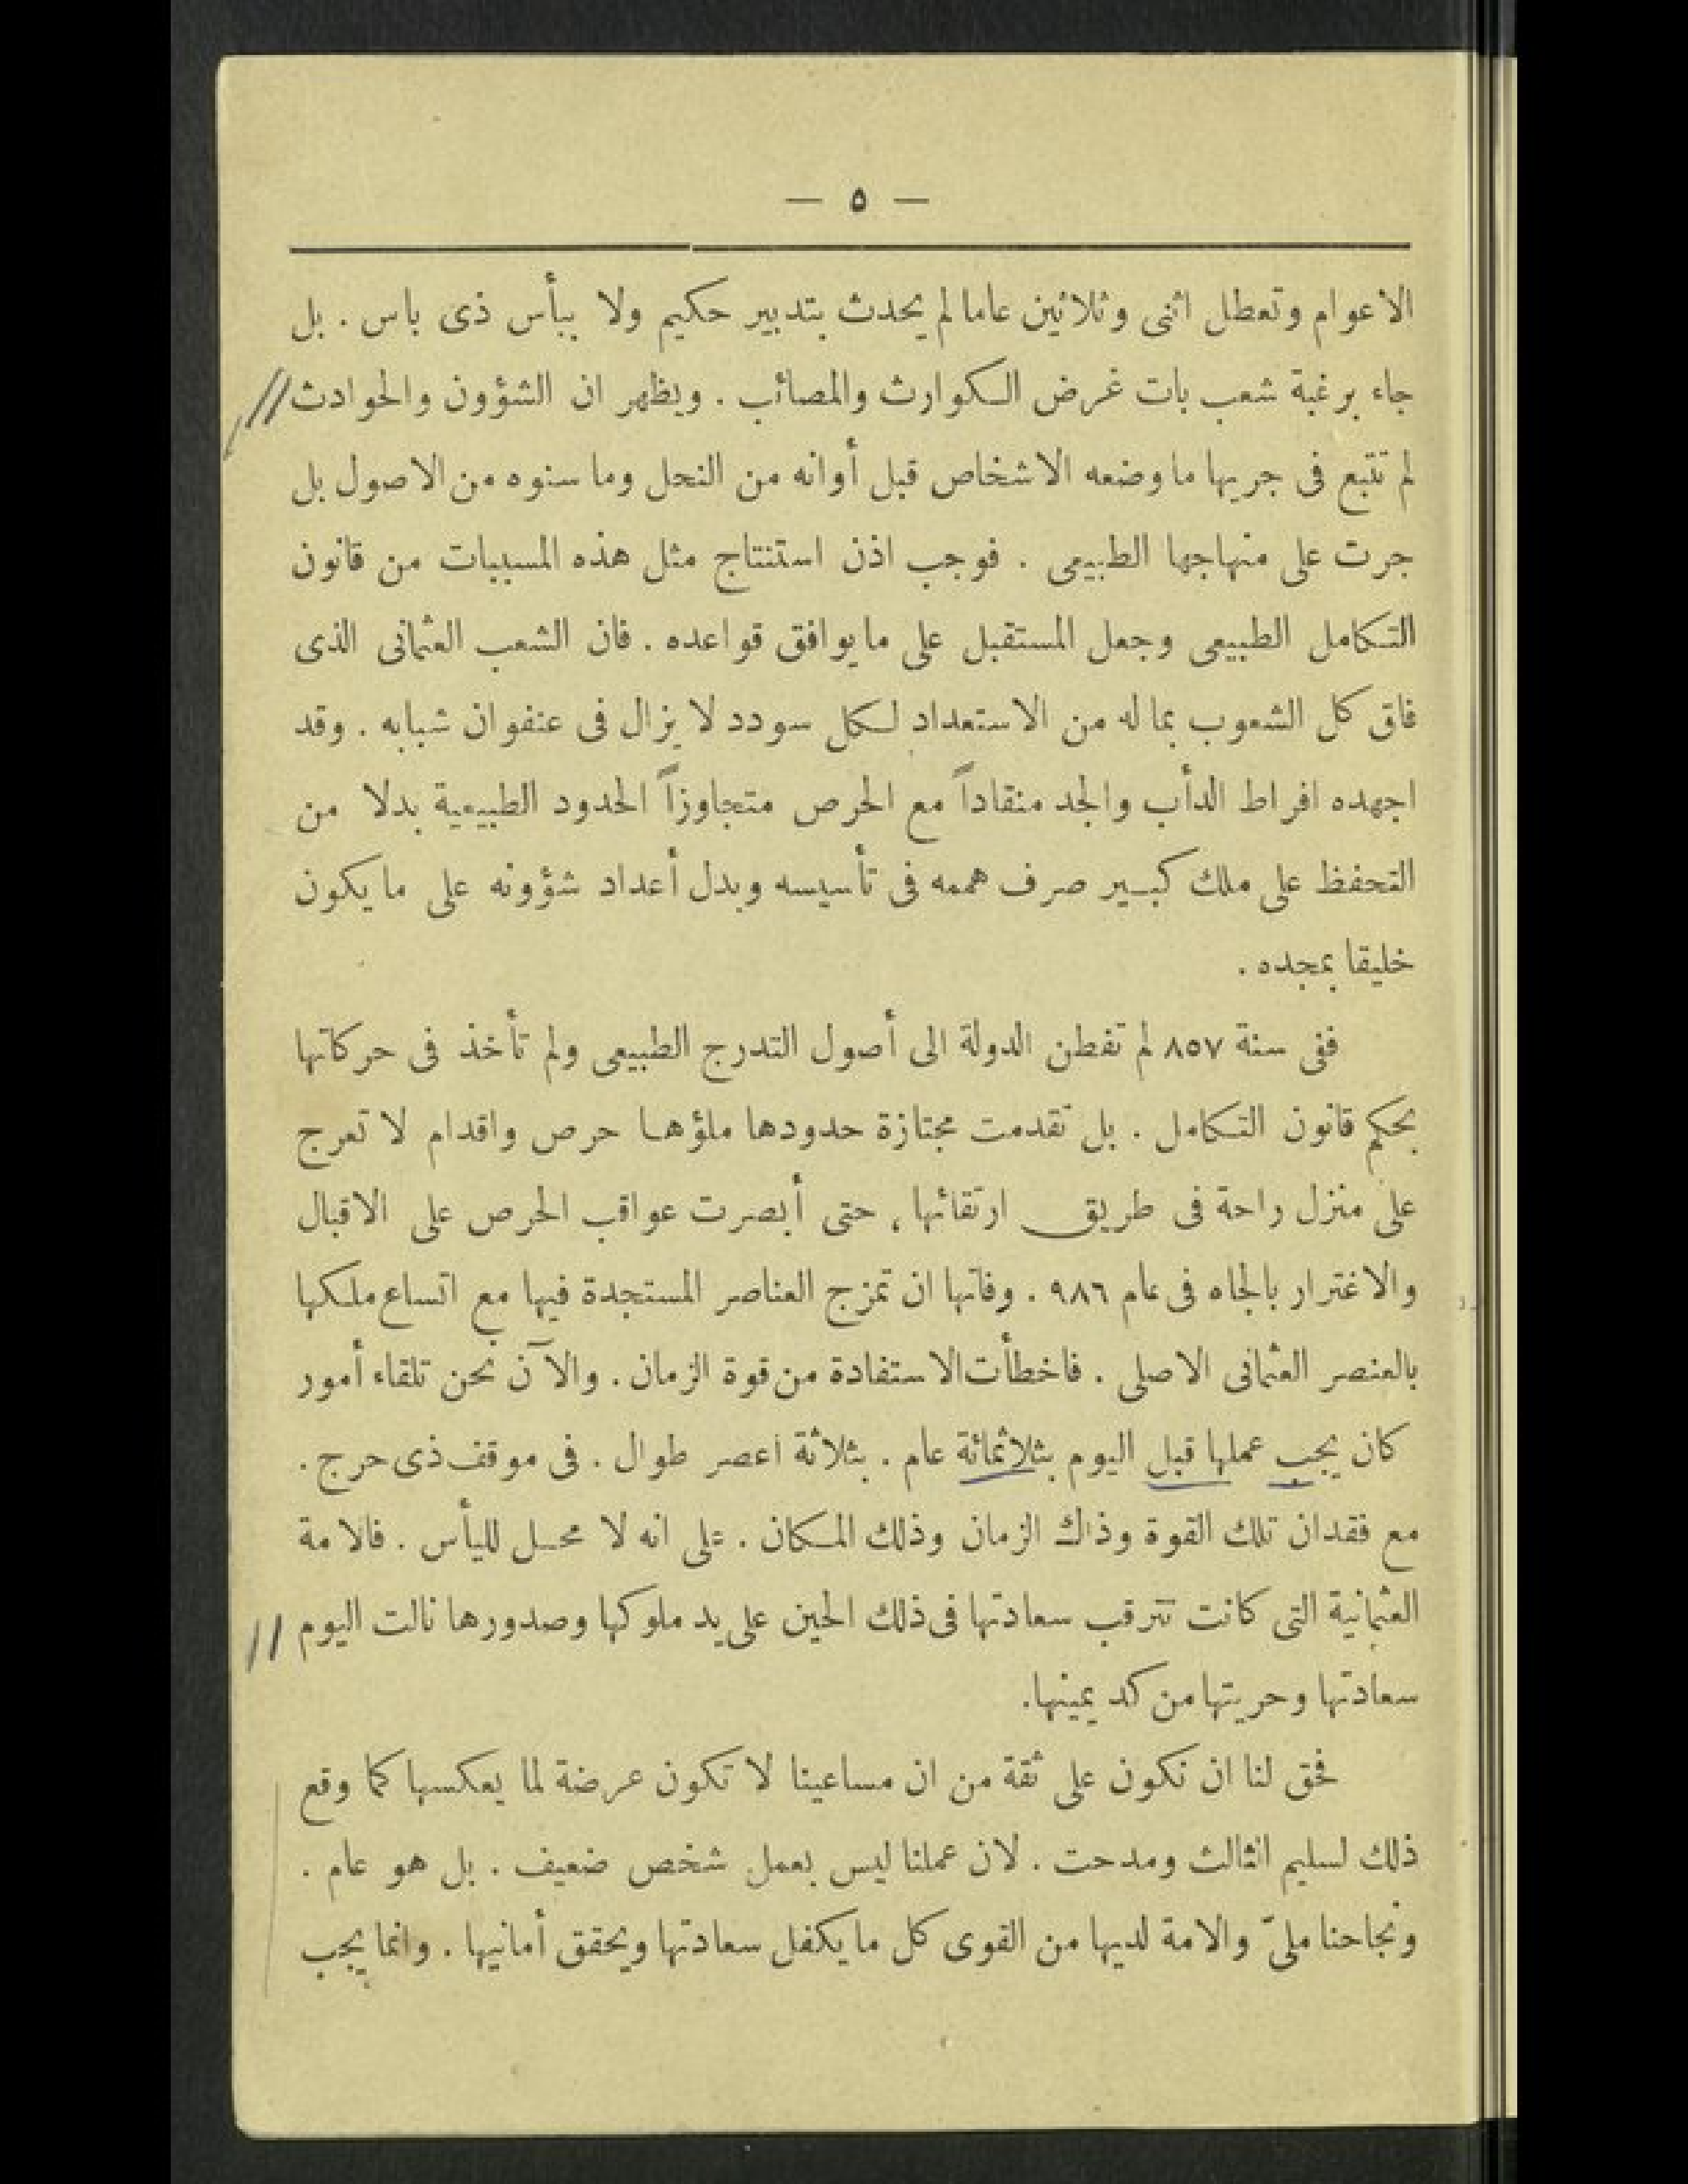 — ٥ —
الاعوام وتعطل اثنى وثلاثين عاما لم يحدث بتدبير حكيم ولا ببأس ذى باس . بل
جاء برغبة شعب بات غرض الكوارث والمصائب . ويظهر ان الشؤون والحوادث
لم تتبع فى جريها ما وضعه الاشخاص قبل أوانه من النحل وما سنوه من الاصول بل
جرت على منهاجها الطبيعى . فوجب اذن استنتاج مثل هذه المسببات من قانون
التكامل الطبيعى وجعل المستقبل على ما يوافق قواعده . فان الشعب العثمانى الذى
فاق كل الشعوب بما له من الاستعداد لكل سودد لا يزال فى عنفوان شبابه . وقد
اجهده افراط الدأب والجد منقاداً مع الحرص متجاوزاً الحدود الطبيعية بدلا من
التحفظ على ملك كبير صرف هممه فى تأسيسه وبدل أعداد شؤونه على ما يكون
خليقا بمجده .
ففى سنة ٨٥٧ لم تفطن الدولة الى أصول التدرج الطبيعى ولم تأخذ فى حركاتها
بحكم قانون التكامل . بل تقدمت مجتازة حدودها ملؤها حرص واقدام لا تعرج
على منزل راحة فى طريق ارتقائها ، حتى أبصرت عواقب الحرص على الاقبال
والاغترار بالجاه فى عام ٩٨٦ . وفاتها ان تمزج العناصر المستجدة فيها مع اتساع ملكها
بالعنصر العثمانى الاصلى . فاخطأت الاستفادة من قوة الزمان . والآن نحن تلقاء أمور
كان يجب عملها قبل اليوم بثلاثمائة عام . بثلاثة أعصر طوال . فى موقف ذى حرج .
مع فقدان تلك القوة وذاك الزمان وذلك المكان . على انه لا محل لليأس . فالامة
العثمانية التى كانت تترقب سعادتها فى ذلك الحين على يد ملوكها وصدورها نالت اليوم
سعادتها وحريتها من كد يمينها.
فحق لنا ان نكون على ثقة من ان مساعينا لا تكون عرضة لما يعكسها كما وقع
ذلك لسليم الثالث ومدحت . لان عملنا ليس بعمل شخص ضعيف . بل هو عام .
ونجاحنا ملىّ والامة لديها من القوى كل ما يكفل سعادتها ويحقق أمانيها . وانما يجب